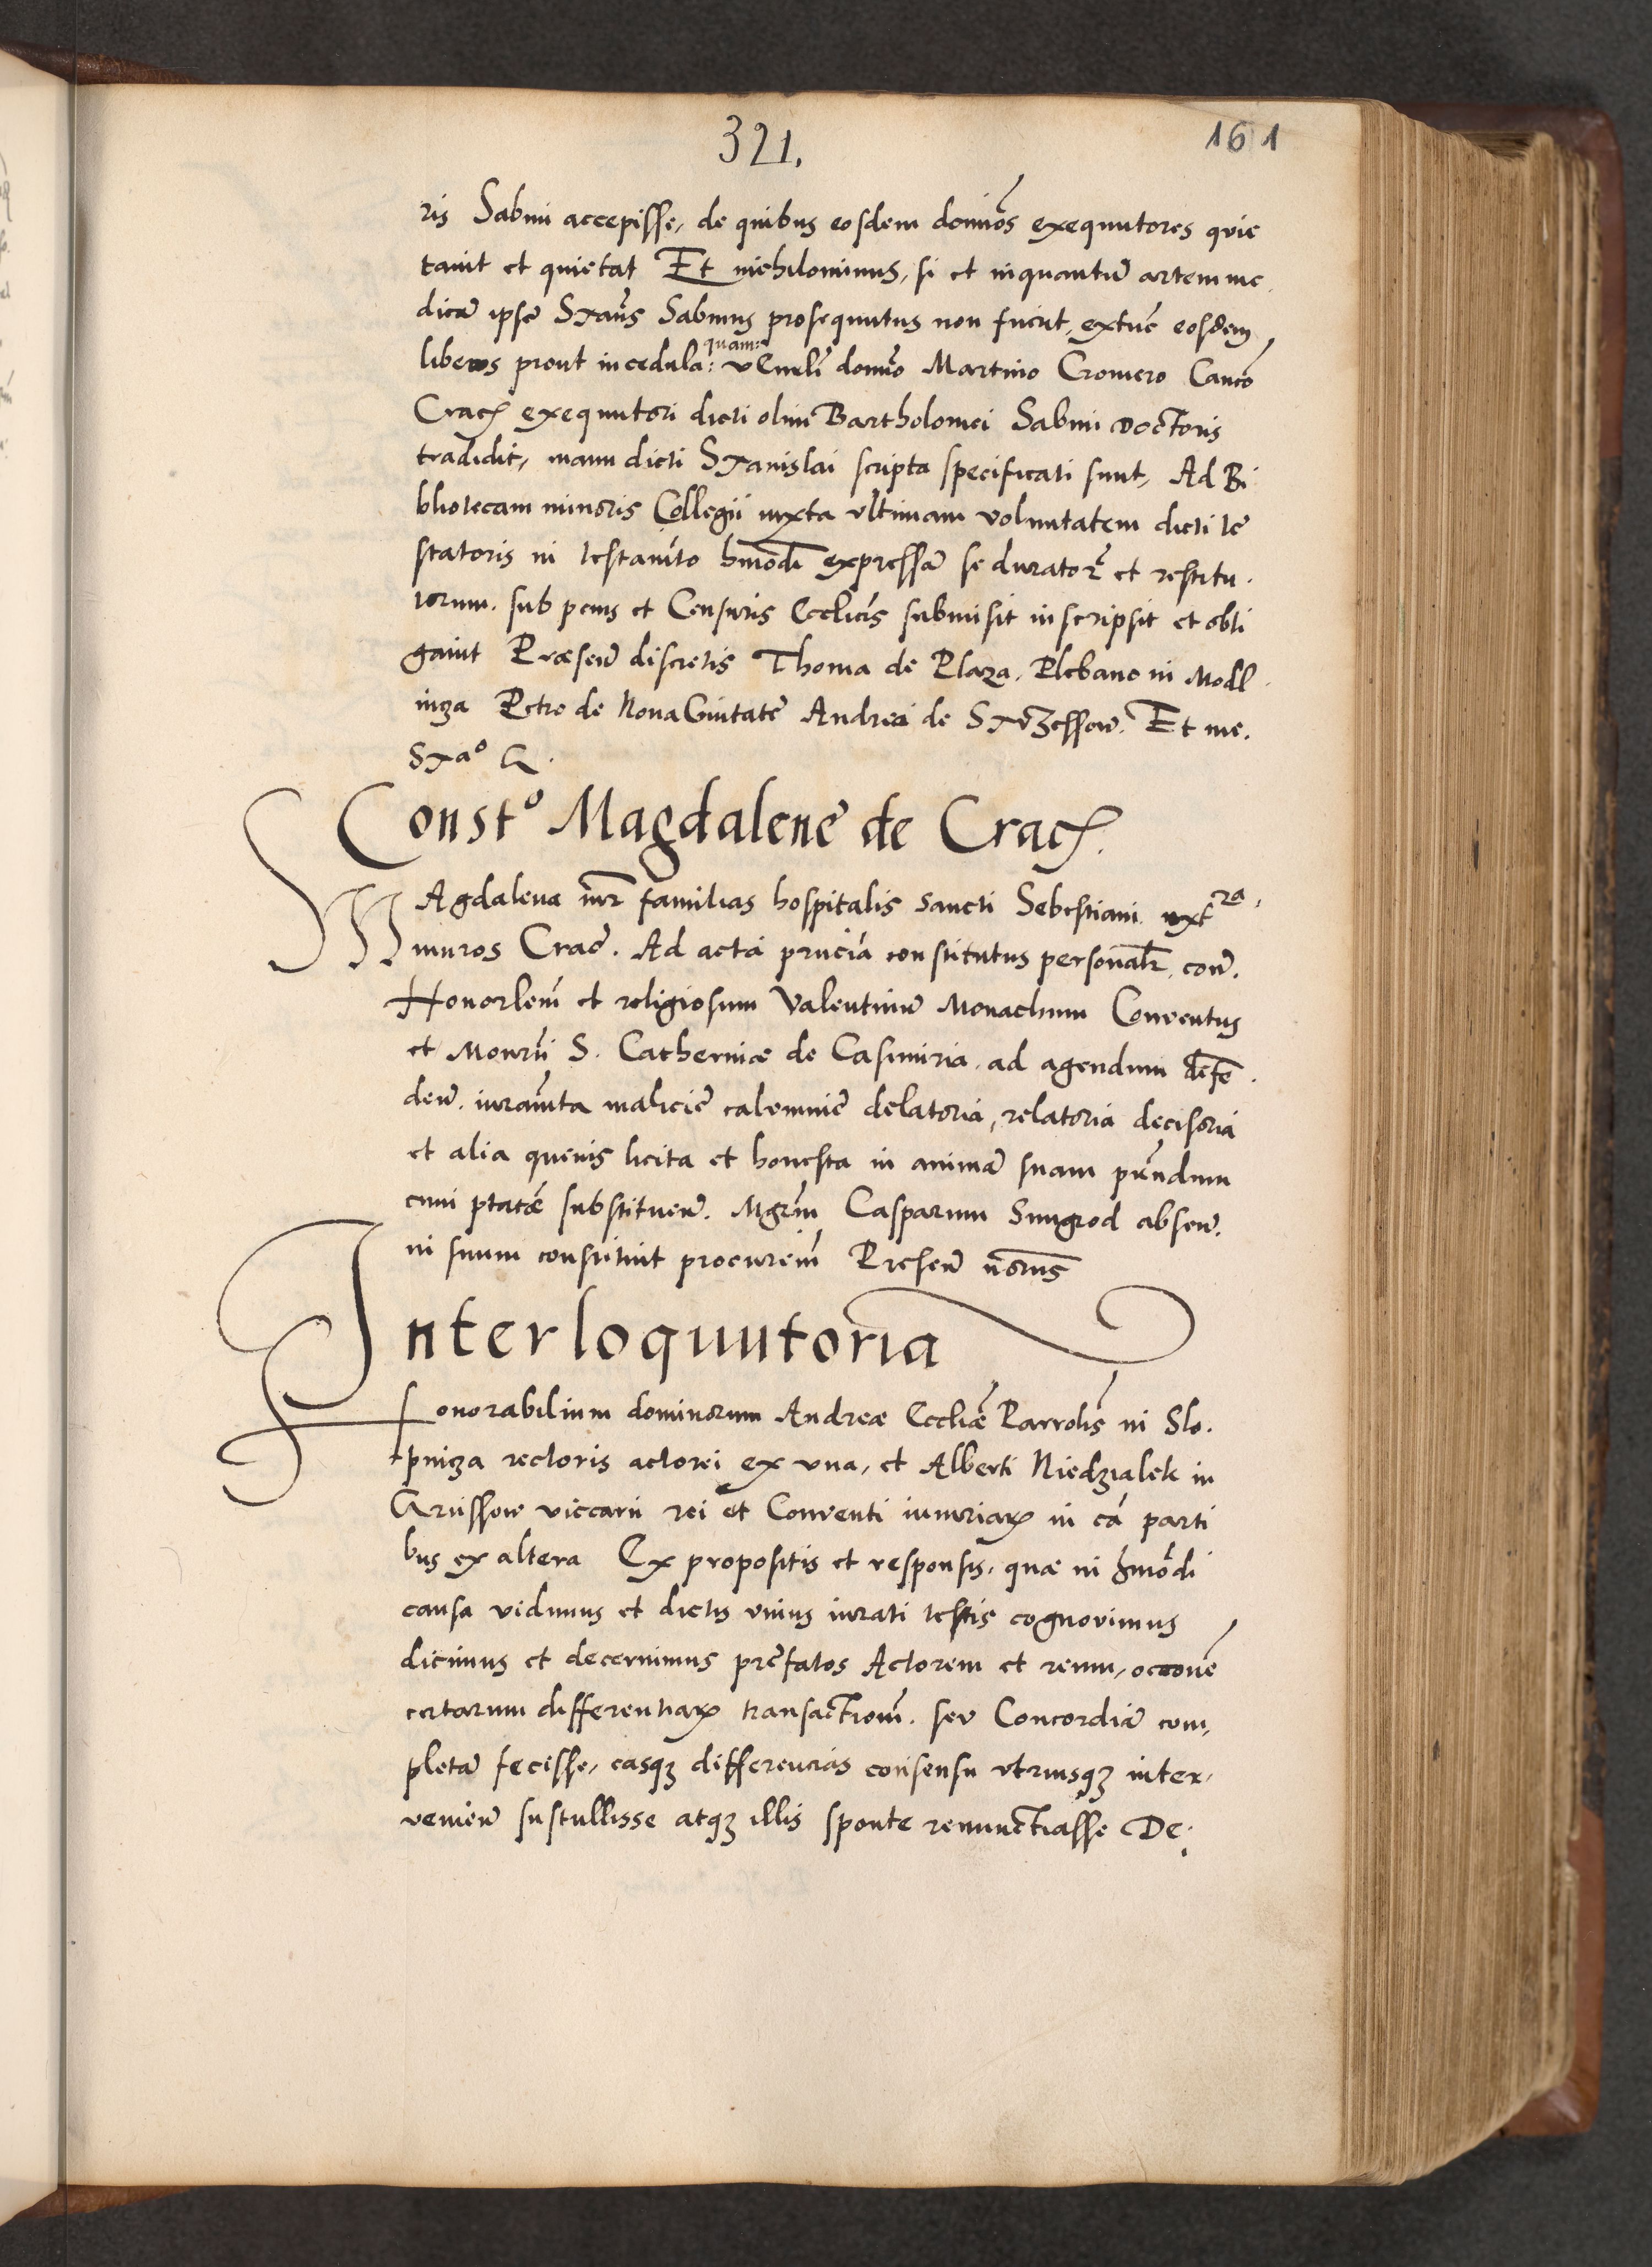 321.
161
ris Sabini accepisse, de quibus eosdem domiōs exequutores quie
tauit et quietat Et niehilominus, si et inquantū artem me
dicā ipse Staūs Sabinus prosequutus non fuerit, extūc eosdem
quam:
liberos prout in cedula: vEnrli domīo Martino Cromero Canco
Crac exequutori dicti olim Bartholomei Sabini Doctoris
tradidit, manu dicti Stanislai scripta specificati sunt, Ad Bi
bliotecam minoris Collegii iuxta vltimam voluntatem dicti te
statoris in testamto hmōdi expressā se duratoR et restitu.
torum. sub penis et Censuris Ecclicis submisit inscripsit et obli
gauit Præsen discretis Thoma de Plaza, Plebano in Modl
nicza Petro de Noua Ciuitate Andrea de Strzessow. Et me.
Stao &.
Consto Magdalene de Crac.
MAgdalena mr familias hospitalis sancti Sebestiani extra
muros Crac. Ad acta pricia constitutus personalr, con.
Honorlem et religiosum Valentinū Monachum Conuentus
et Monrii S. Catherinæ de Casimiria, ad agendum defe
den. iuramta malicie calumnie delatoria, relatoria decisoria
et alia queuis licita et honesta in animā suam prnduu
cum ptate substituen. Mgrm Casparum Sungrod absen.
in suum constituit procurem Presen norius
Interloquutoria
Honorabilium dominorum Andreæ Eccliæ Parrolis in Slo.
pnicza rectoris actorei ex vna, et Alberti Niedzialek in
Grussow viccarii rei et Conuenti iniuriaR in ca parti
bus ex altera Ex propositis et responsis, quæ in hmōdi
causa vidimus et dictis vnius iurati testis cognouimus
dicimus et decernimus prefatos Actorem et reum, occoune
certarum differentiaR transactionem. seu Concordiā com,
pletā fecisse, easqz differencias consensu vtriusqz inter,
venien sustullisse atqz illis sponte renunctiasse De: